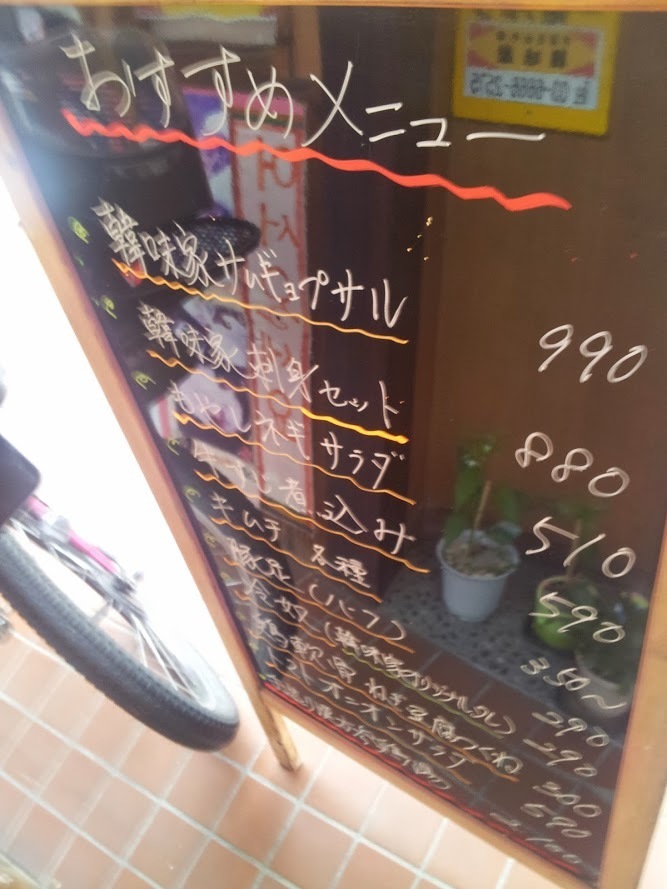 おすすめメニュー
韓味家サムギョプサル 990
韓味家刺身セット 880
もやしネギサラダ 510
牛すじ煮込み 590
キムチ 各種 350～
豚足 (ハーフ) 290
冷奴 (韓味家オリジナルタレ) 290
鶏軟骨ねぎ豆腐つくね 300
トマトオニオンサラダ 590